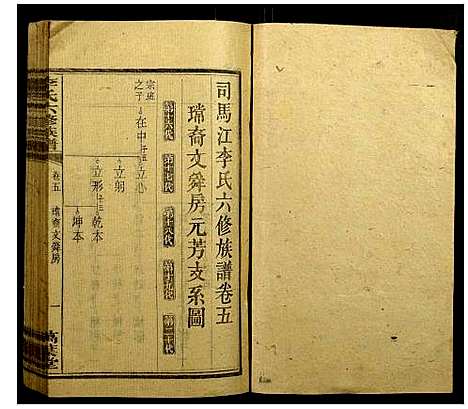 司馬江李氏六修族譜卷五
瑞裔文舜房元芳支系圖
第十六代 第十七代 第十八代 第十九代 第二十代
宗班之子 在中 子三 立志
立躬
立形 子二 乾本
坤本
李氏六修族譜 卷五 瑞裔文舜房 一